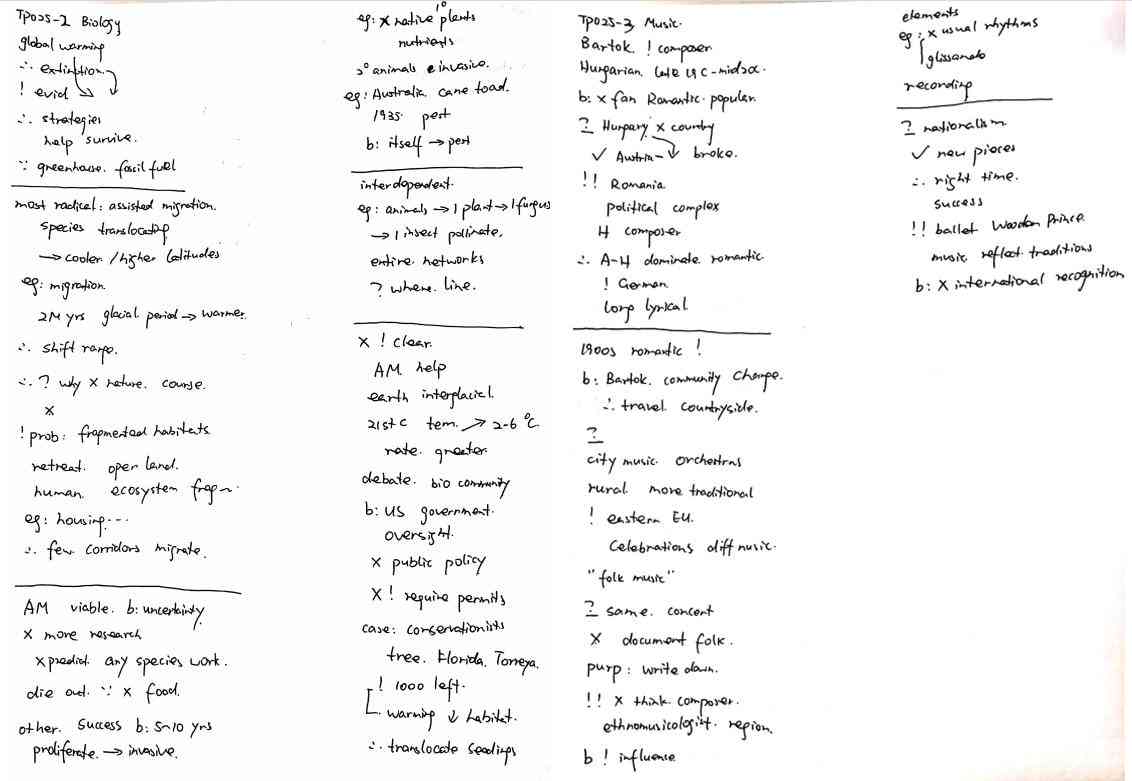 TPO25-2 Biology
global warming
∴ extinction
! evid
∴ strategies
help survive.
∵ greenhouse. fossil fuel
most radical: assisted migration.
species translocating
→ cooler / higher latitudes
eg: migration
2M yrs glacial period → warmer
∴ shift range.
∴ ? why x nature. course.
x
! prob: fragmented habitats
retreat. open land.
human. ecosystem frag~
eg: housing...
∴ few corridors migrate.
AM viable. b: uncertainty
x more research
x predict. any species work.
die out. ∵ x food.
other. success b: 5~10 yrs
proliferate. → invasive.
eg: x native plants 1°
nutrients
2° animals invasive.
eg: Australia. cane toad.
1935. pest
b: itself → pest
interdependent.
eg: animals → 1 plant → 1 fungus
→ 1 insect pollinate.
entire networks
? where. line.
x ! clear.
AM help
earth interglacial.
21st C tem. ↗ 2-6 °C.
rate. greater
debate. bio community
b: US government.
oversight.
x public policy
x ! require permits
case: conservationists
tree. Florida. Torreya.
! 1000 left.
warming ↓ habitat.
∴ translocate seedings
TPO25-3 Music.
Bartok. ! composer
Hungarian. late 19C-mid20.
b: x fan Romantic. popular.
? Hungary x country
✓ Austria- ↓ broke.
!! Romania
political complex
H composer
∴ A-H dominate. romantic.
! German
long lyrical
1900s romantic !
b: Bartok. community change.
∴ travel countryside.
?
city music. orchestras
rural. more traditional
! eastern EU.
Celebrations diff music.
"folk music"
? same. concert
x document folk.
purp: write down.
!! x think. composer.
ethnomusicologist. region.
b ! influence
elements
eg: x usual rhythms
glissando
recording
? nationalism
✓ new pieces
∴ right time.
success
!! ballet Wooden Prince.
music reflect traditions
b: x international recognition